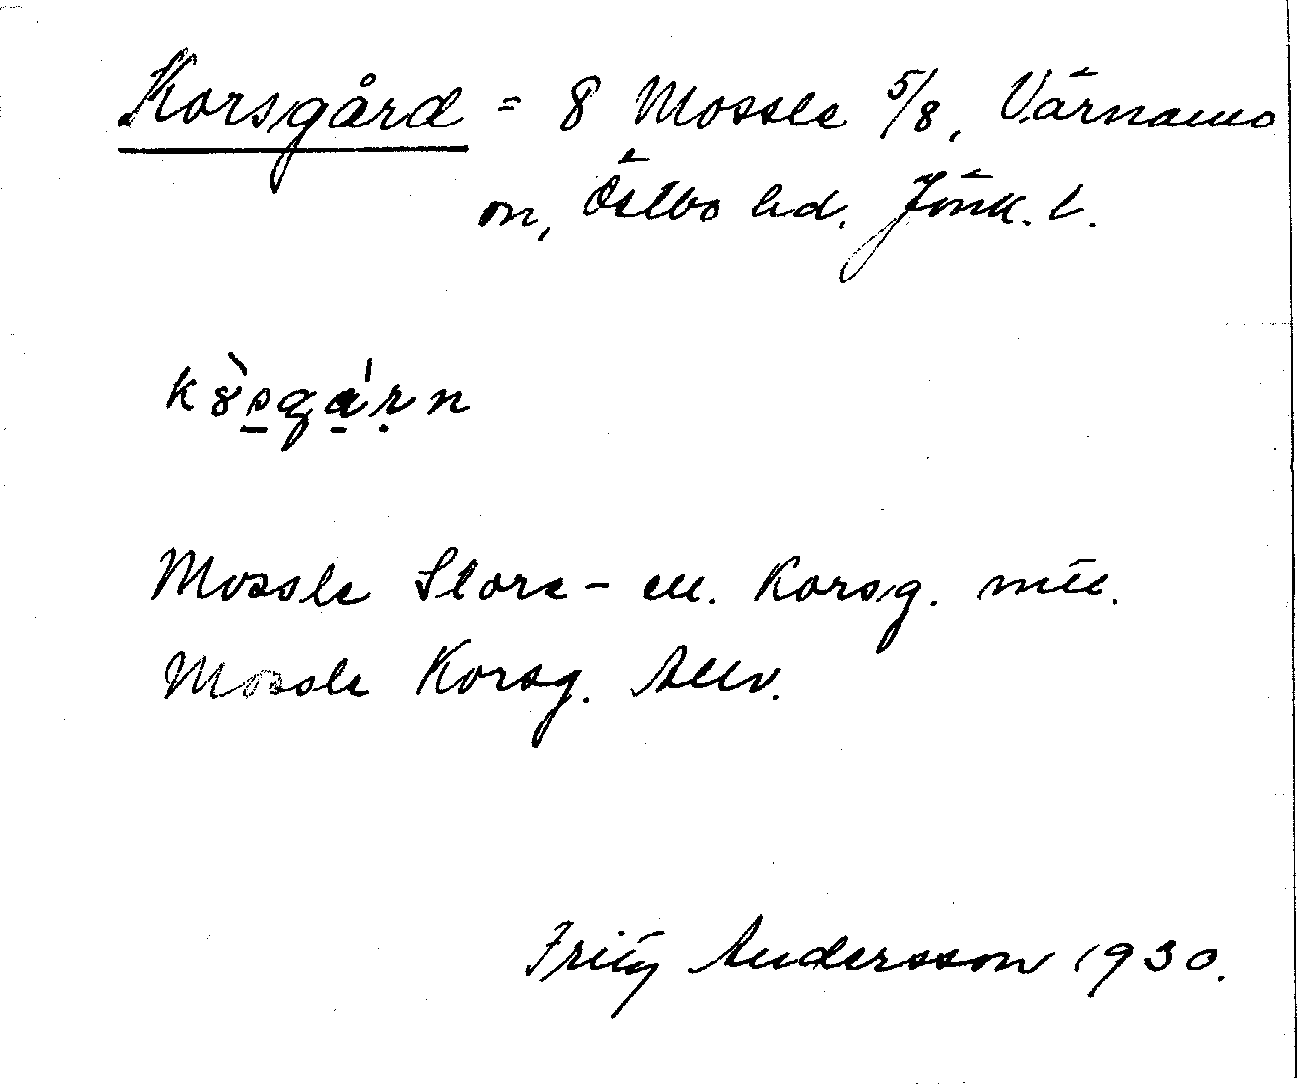 Korsgård = 8 Mossle 5/8, Värnamo
sn, Östbo hd. Jönk. l.
Mossle Store- ell. Korsg.
Mossle Korsg.
Fritz Andersson 1930.